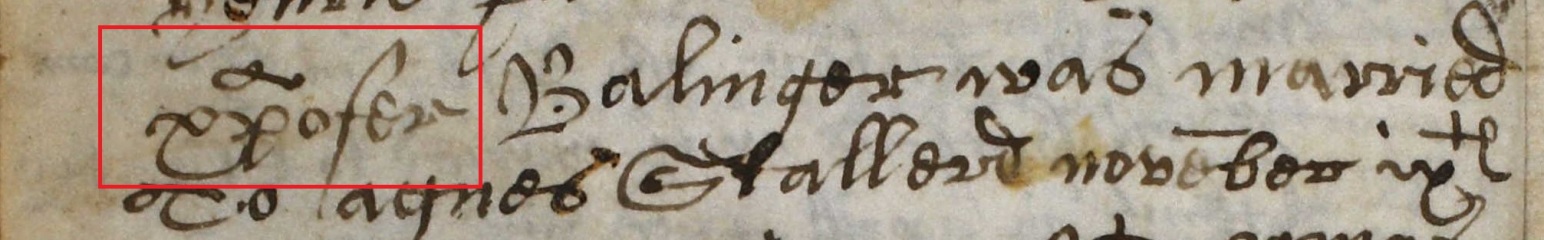 xp̃ofer Balinger was married
To agnes Stallerd novēber ixth